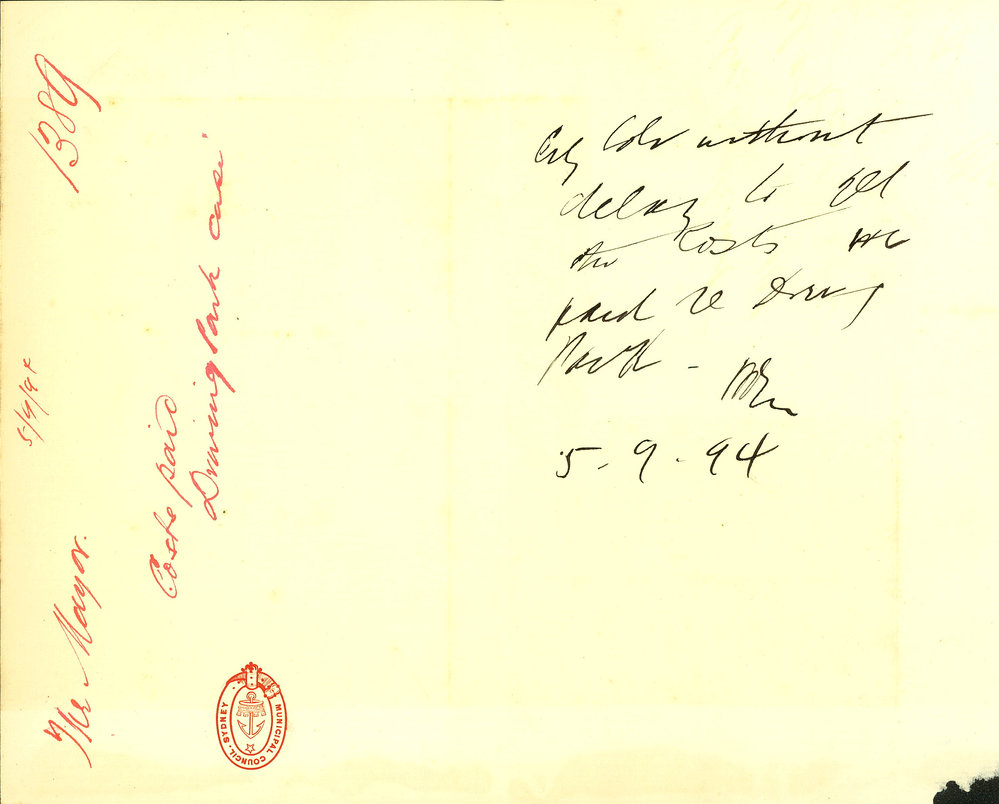 1389
5/9/94
The Mayor.
Costs paid
Driving Park case
SYDNEY MUNICIPAL COUNCIL
City Solr without
delay to get
the costs we
paid re Driving
Park -
5 - 9 - 94